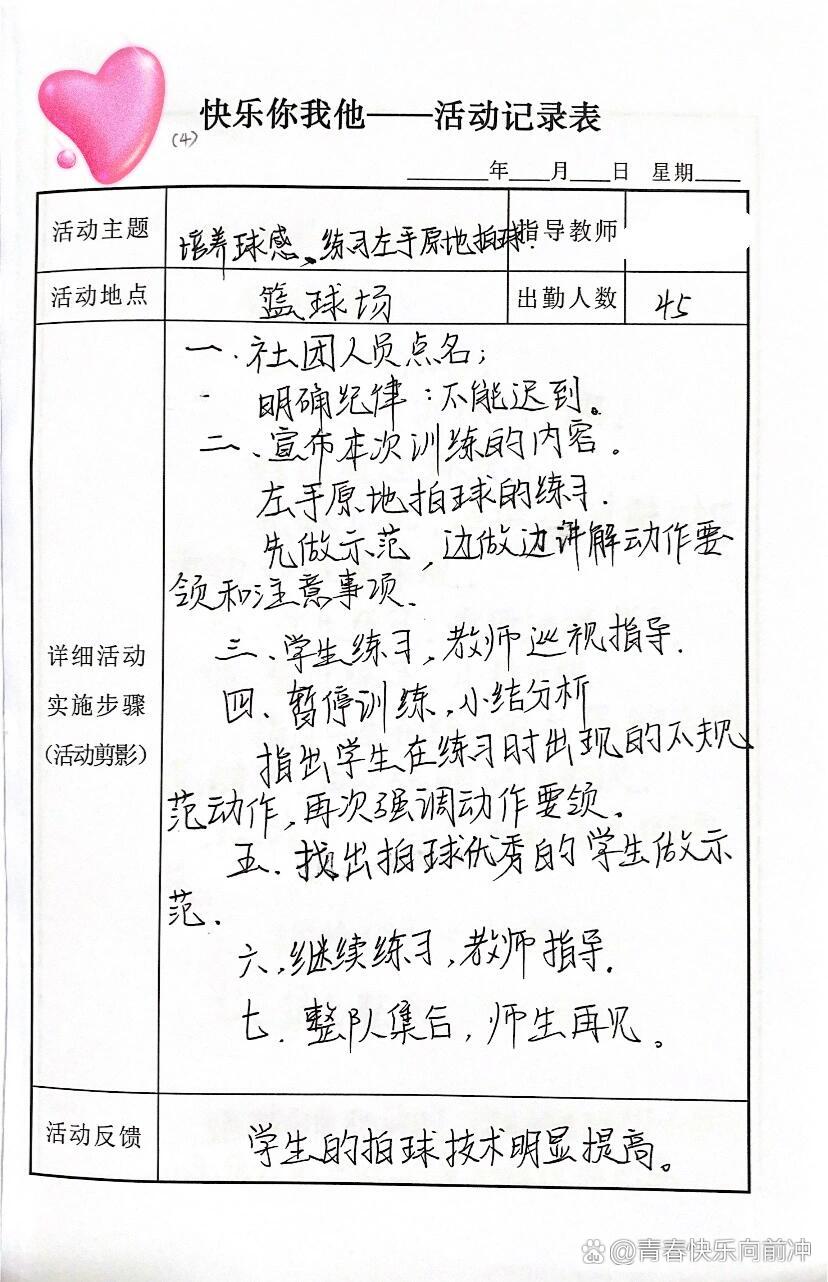 快乐你我他——活动记录表
(4)
____年____月____日 星期____
活动主题 培养球感、练习左手原地拍球. 指导教师
活动地点 篮球场 出勤人数 45
一.社团人员点名;
明确纪律:不能迟到。
二、宣布本次训练的内容。
左手原地拍球的练习.
先做示范,边做边讲解动作要
领和注意事项.
三、学生练习,教师巡视指导.
四、暂停训练,小结分析
指出学生在练习时出现的不规
范动作,再次强调动作要领。
五.找出拍球优秀的学生做示
范.
六,继续练习,教师指导.
七.整队集合,师生再见。
详细活动
实施步骤
(活动剪影)
活动反馈 学生的拍球技术明显提高。
du @青春快乐向前冲